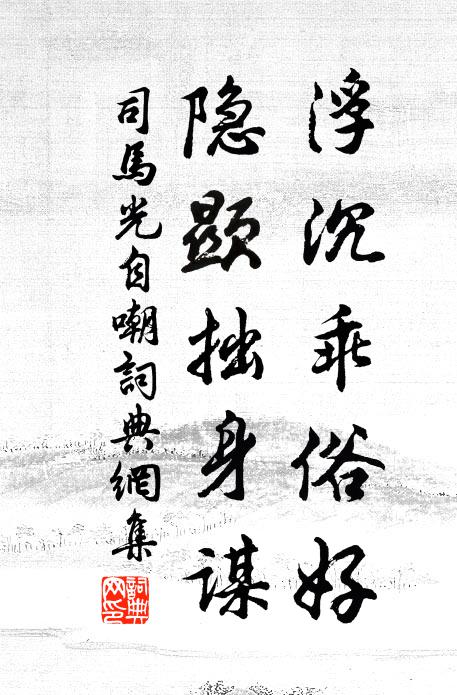 浮沉乖俗好
隐顯拙身謀
司馬光自嘲詞典網集
詞典网印